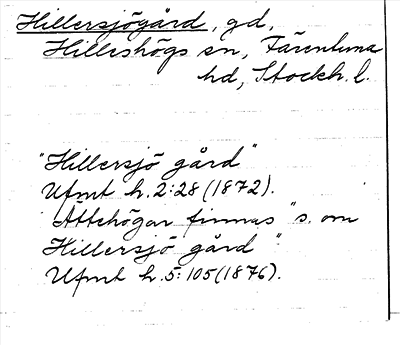 Hillersjögård, gd,
Hilleshögs sn, Färentuna
hd, Stockh. l.
"Hillersjö gård"
Ufmt h. 2:28 (1872).
"Ättehögar finnas" s. om
Hillersjö gård"
Ufmt h. 5:105 (1876).